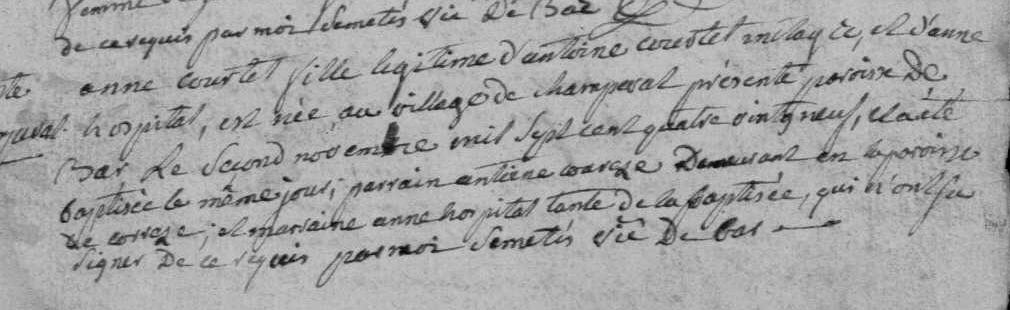 femme
de ce requis par moi Semetis vic De Bar
anne courtet fille legitime d'antoine courtet et d'anne
hospital, est née au village de champeval présente paroisse De
Bar Le Second novembre mil sept cent quatre vingt neuf, et a été
baptisée le même jour; parrain antoine Demeurant en la paroisse
de correze; et marraine anne hospital tante de la baptisée, qui n'ont su
signer De ce requis par moi Semetis vic De bar